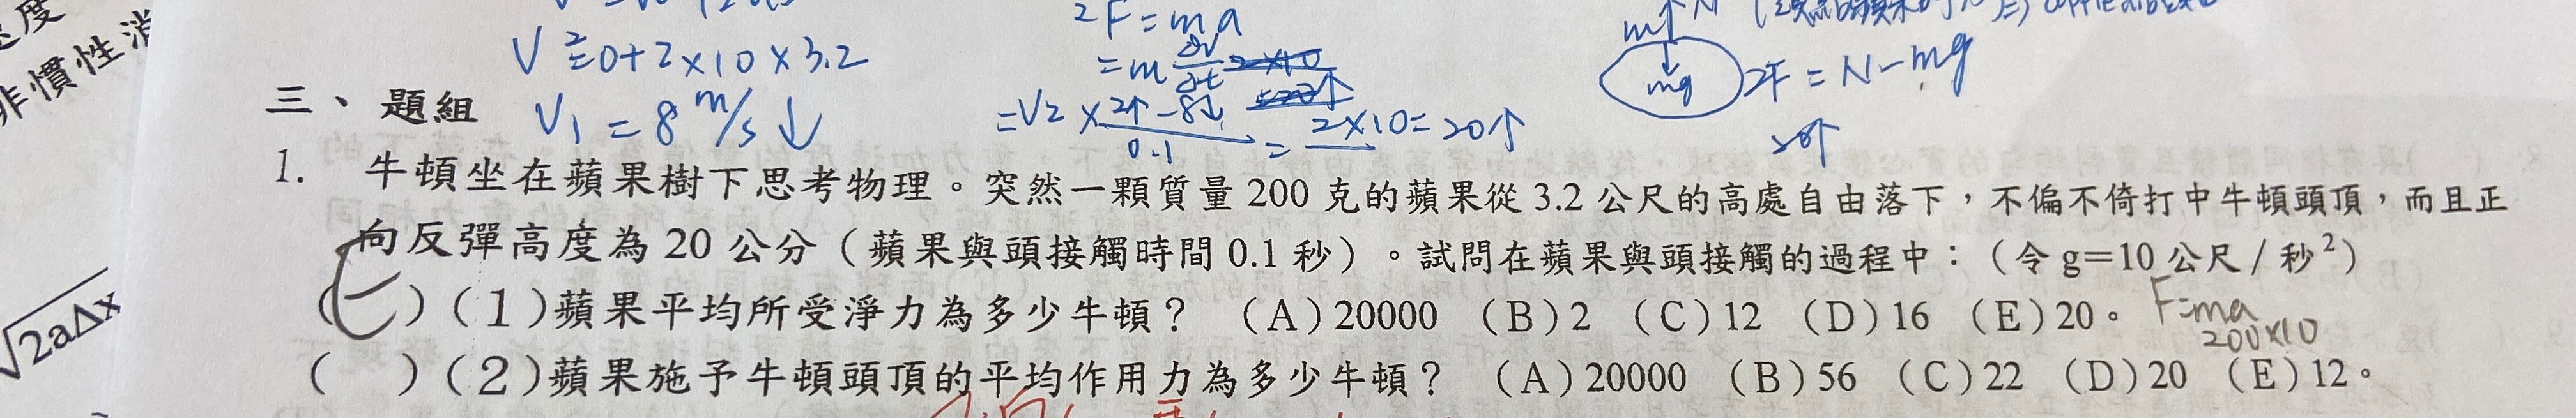 速度
非慣性
√2aΔx
V²=0+2×10×3.2
V₁=8 m/s↓
ΣF=ma
=m Δv/Δt
× 2↑-8↓ / 0.1 = 2×10=20↑
N
mg
ΣF=N-mg
三、題組
1. 牛頓坐在蘋果樹下思考物理。突然一顆質量 200 克的蘋果從 3.2 公尺的高處自由落下,不偏不倚打中牛頓頭頂,而且正
向反彈高度為 20 公分(蘋果與頭接觸時間 0.1 秒)。試問在蘋果與頭接觸的過程中:(令 g=10 公尺/秒²)
( )(1)蘋果平均所受淨力為多少牛頓? (A)20000 (B)2 (C)12 (D)16 (E)20。
F=ma
200×10
( )(2)蘋果施予牛頓頭頂的平均作用力為多少牛頓? (A)20000 (B)56 (C)22 (D)20 (E)12。